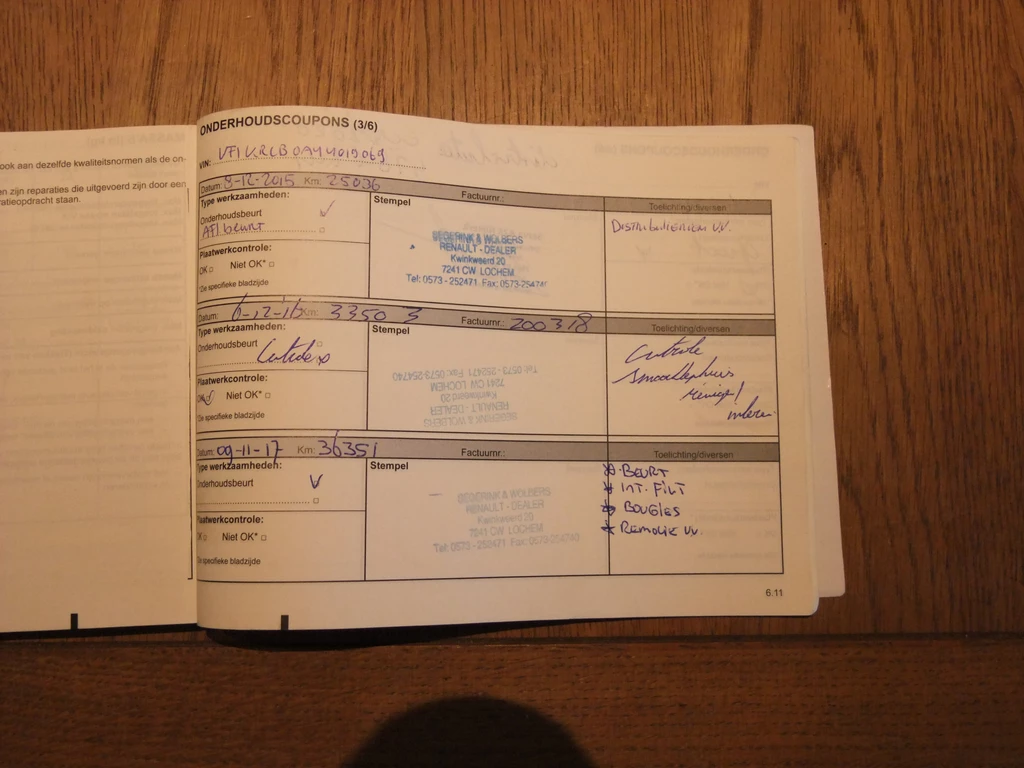 ook aan dezelfde kwaliteitsnormen als de on-
en zijn reparaties die uitgevoerd zijn door een
ratieopdracht staan.
ONDERHOUDSCOUPONS (3/6)
VIN:
Datum: 8-12-2015 Km: 25036 Factuurnr.: Toelichting/diversen
Type werkzaamheden:
Onderhoudsbeurt
AFL beurt
Plaatwerkcontrole:
OK Niet OK*
*De specifieke bladzijde
Stempel
BEDERINK & WOLBERS
RENAULT - DEALER
Kwinkweerd 20
7241 CW LOCHEM
Tel: 0573 - 252471 Fax: 0573-254740
DISTRIBUTIERIEM VV.
Datum: 6-12-16 Km: 33503 Factuurnr.: 200378 Toelichting/diversen
Type werkzaamheden:
Onderhoudsbeurt
Controle
Plaatwerkcontrole:
OK Niet OK*
*De specifieke bladzijde
Stempel
BEDERINK & WOLBERS
RENAULT - DEALER
Kwinkweerd 20
7241 CW LOCHEM
Tel: 0573 - 252471 Fax: 0573-254740
Controle
Datum: 09-11-17 Km: 36351 Factuurnr.: Toelichting/diversen
Type werkzaamheden:
Onderhoudsbeurt
Plaatwerkcontrole:
OK Niet OK*
*De specifieke bladzijde
Stempel
BEDERINK & WOLBERS
RENAULT - DEALER
Kwinkweerd 20
7241 CW LOCHEM
Tel: 0573 - 252471 Fax: 0573-254740
* BEURT
* INT. FILT
* BOUGIES
* REMOLIE VV.
6.11